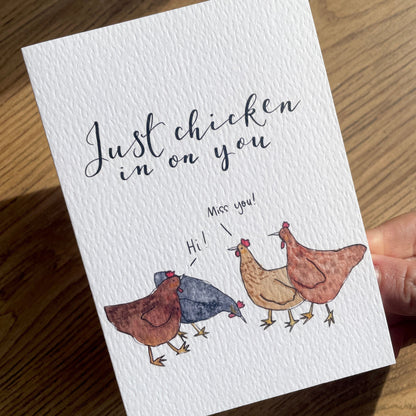 Just chicken
in on you
Miss you!
Hi!